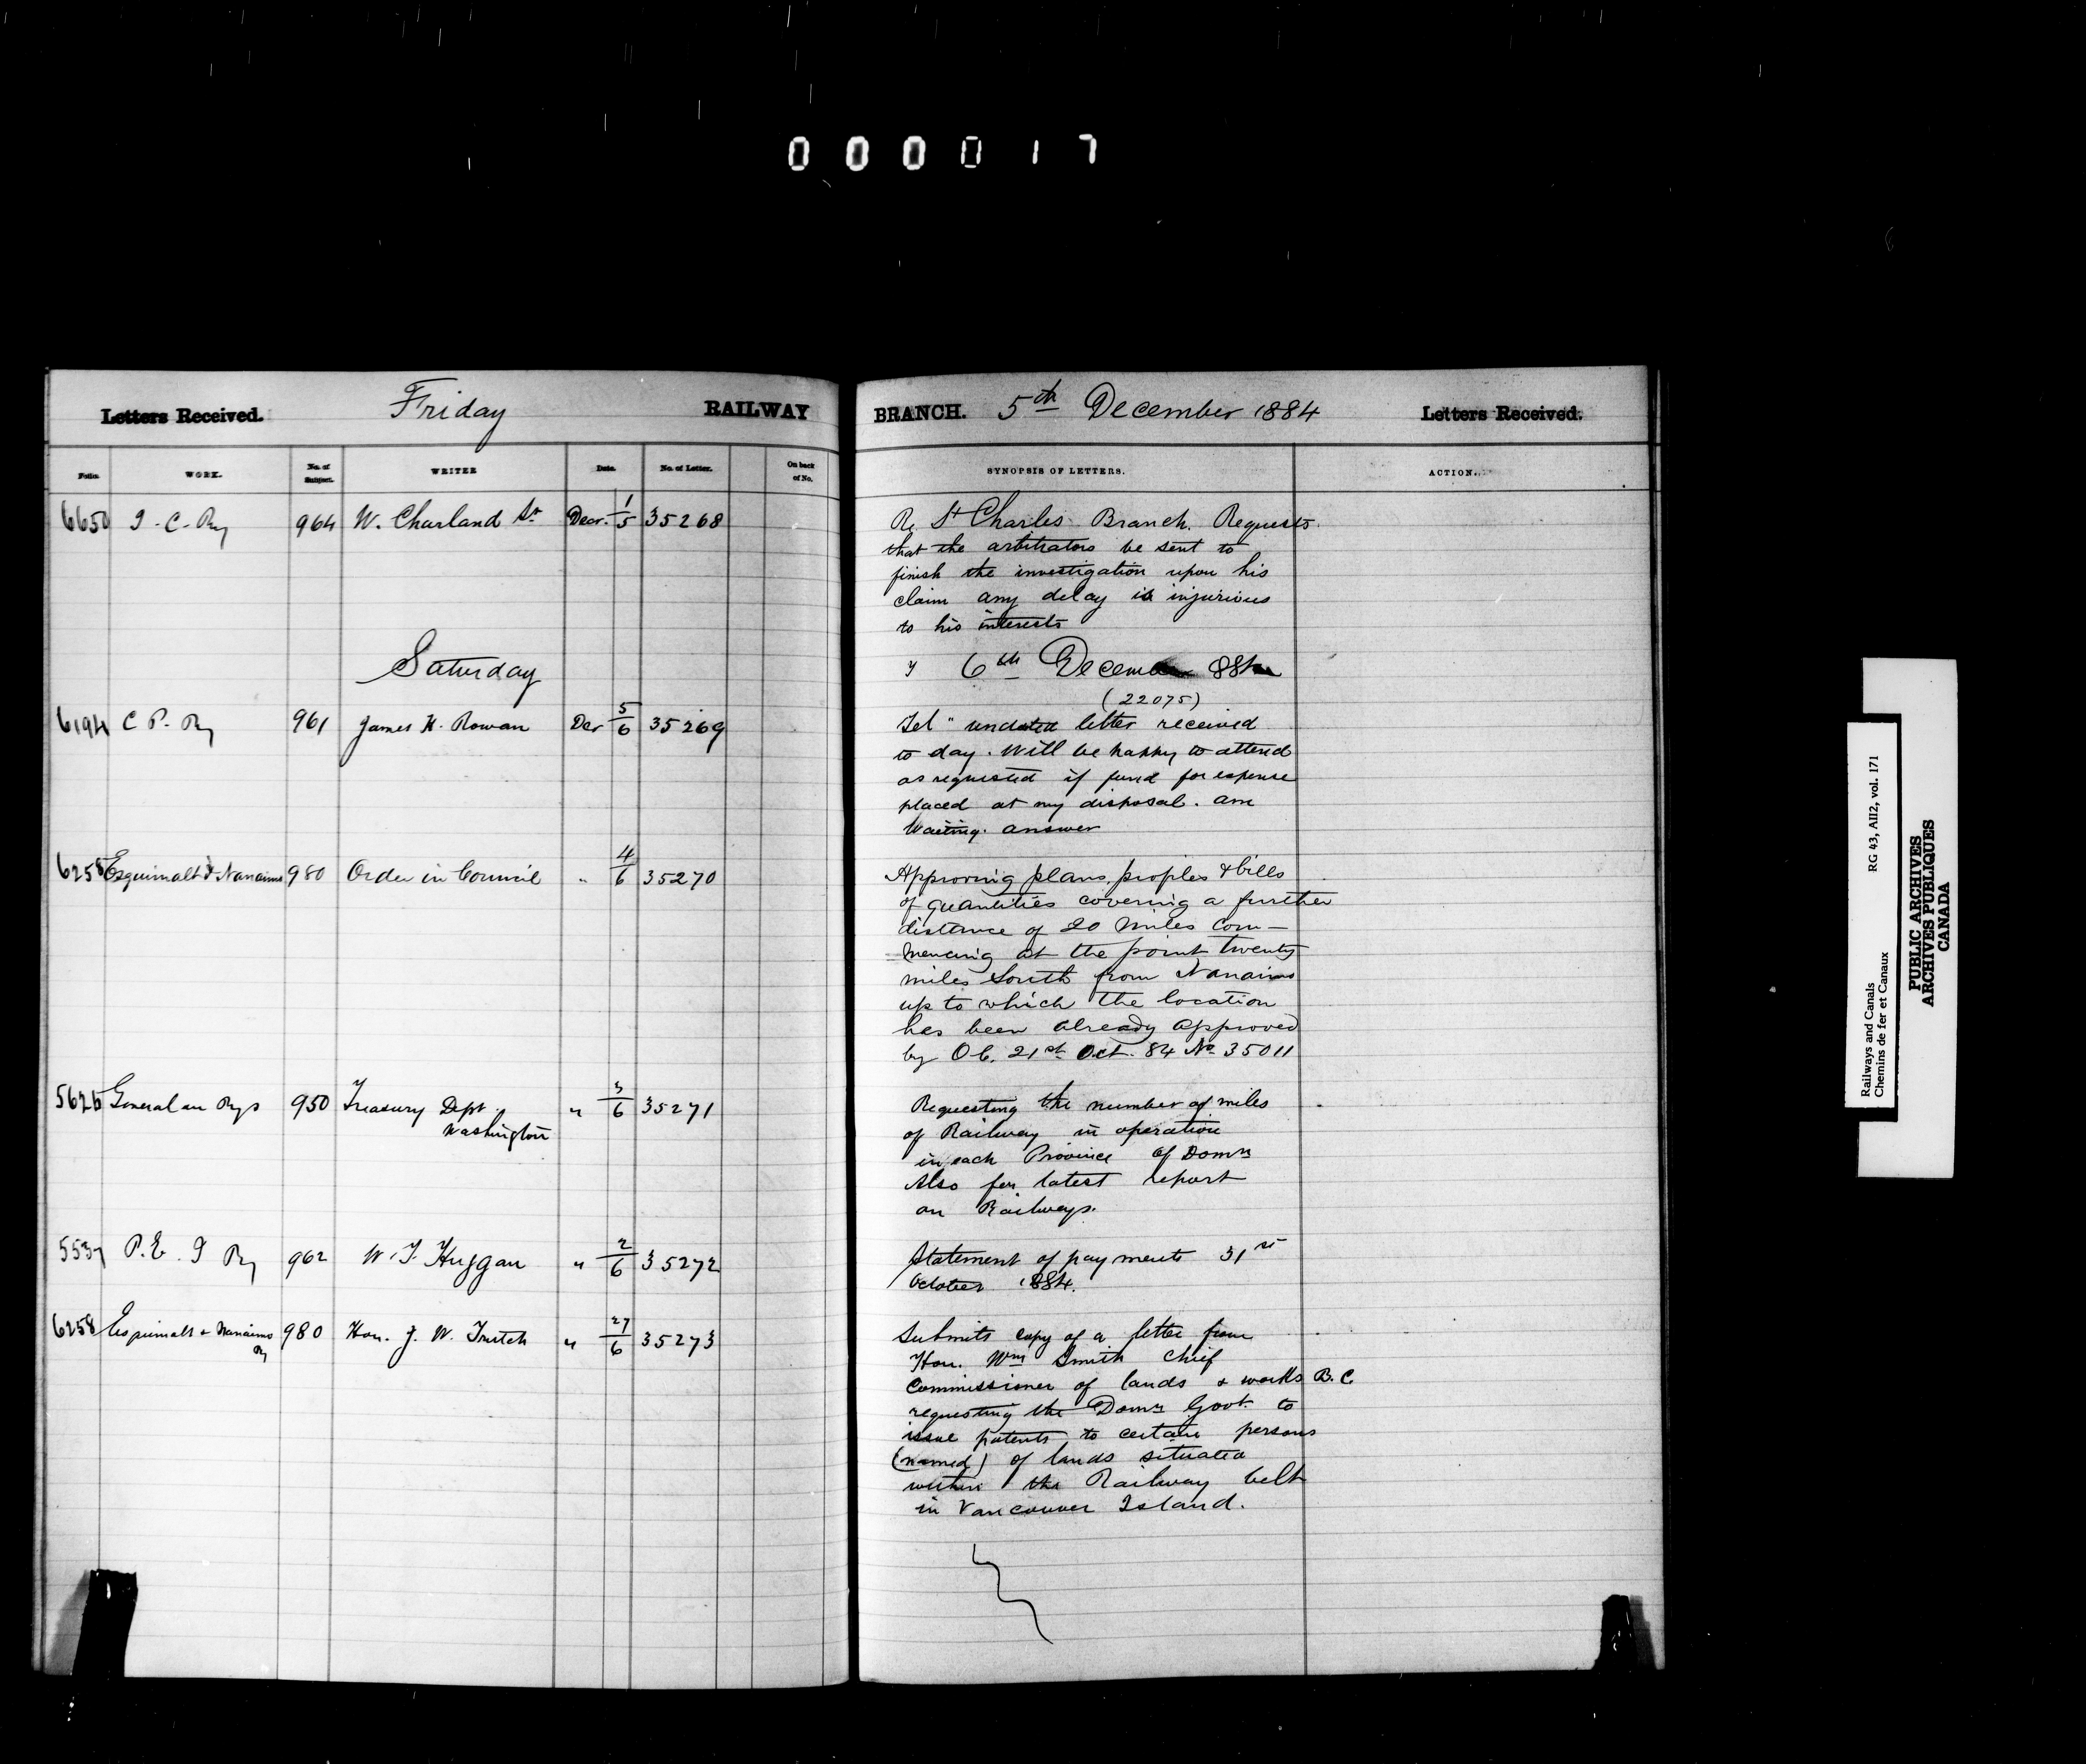 000017
Letters Received. Friday RAILWAY BRANCH. 5th December 1884 Letters Received.
Folio. WORK. No. of Subject. WRITER Date. No. of Letter. On back of No. SYNOPSIS OF LETTERS. ACTION.
6650 I. C. Ry 964 W. Charland Sr Decr. 1/5 35268 Re St Charles Branch. Requests
that the arbitrators be sent to
finish the investigation upon his
claim any delay is injurious
to his interests
Saturday 6th December 1884
(22075)
6194 C P. Ry 961 James H. Rowan Decr 5/6 35269 Tel " undated letter received
to day. Will be happy to attend
as requested if fund for expense
placed at my disposal. am
Waiting. answer
6258 Esquimalt & Nanaimo 980 Order in Council " 4/6 35270 Approving plans, profiles & bills
of quantities covering a further
distance of 20 miles com-
mencing at the point twenty
miles South from Nanaimo
up to which the location
has been already approved
by O.C. 21st Oct. 84 No 35011
5625 General on Rys 950 Treasury Dept. Washington " 3/6 35271 Requesting the number of miles
of Railway in operation
in each Province of Domn
Also for latest report
on Railways.
5537 P. E. I Ry 962 W. T. Huggan " 2/6 35272 Statement of payments 31st
October 1884.
6258 Esquimalt & Nanaimo Ry 980 Hon. J. W. Trutch " 27/6 35273 Submits copy of a letter from
Hon. Wm Smith Chief
Commissioner of lands & works B. C.
requesting the Domn Govt. to
issue patents to certain persons
(named) of lands situated
within the Railway belt
in Vancouver Island.
Railways and Canals RG 43, AII2, vol. 171
Chemins de fer et Canaux
PUBLIC ARCHIVES
ARCHIVES PUBLIQUES
CANADA